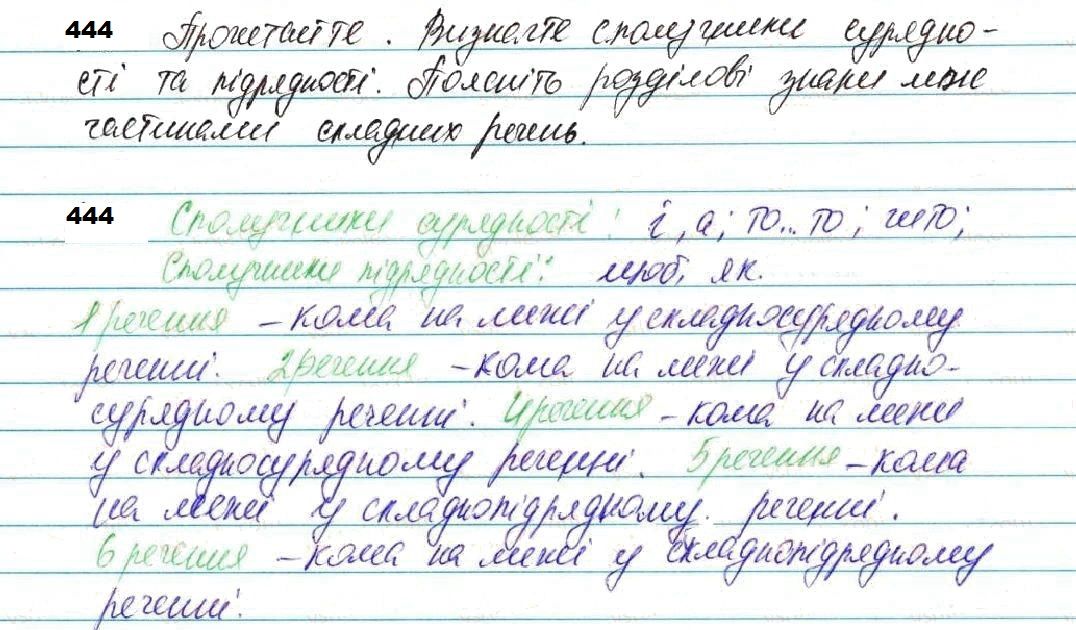 444 Прочитайте. Визначте сполучники сурядно-
сті та підрядності. Поясніть розділові знаки між
частинами складних речень.
444 Сполучники сурядності: і, а; то... то; чи то;
Сполучники підрядності: щоб, як.
1 речення – кома на межі у складносурядному
реченні. 2 речення – кома на межі у складно-
сурядному реченні. 4 речення – кома на межі
у складносурядному реченні. 5 речення – кома
на межі у складнопідрядному реченні.
6 речення – кома на межі у складнопідрядному
реченні.